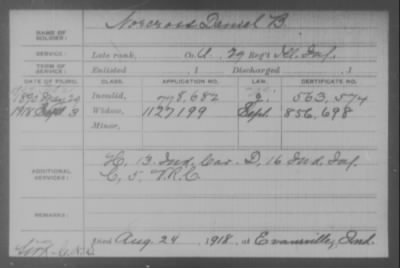 NAME OF SOLDIER: Norcross Daniel B.
SERVICE: Late rank, Co. A. 29 Reg't Ill. Inf.
TERM OF SERVICE: Enlisted , 1 Discharged , 1
DATE OF FILING. CLASS. APPLICATION NO. LAW. CERTIFICATE NO.
1890 May 29 Invalid, 778,682 563,574
1918 Sept 3 Widow, 1127199 Sept. 856,698
Minor,
ADDITIONAL SERVICES: H, 13 Ind. Cav. D, 16 Ind. Inf.
C, 5 V.R.C.
REMARKS:
Died Aug. 24, 1918, at Evansville, Ind.